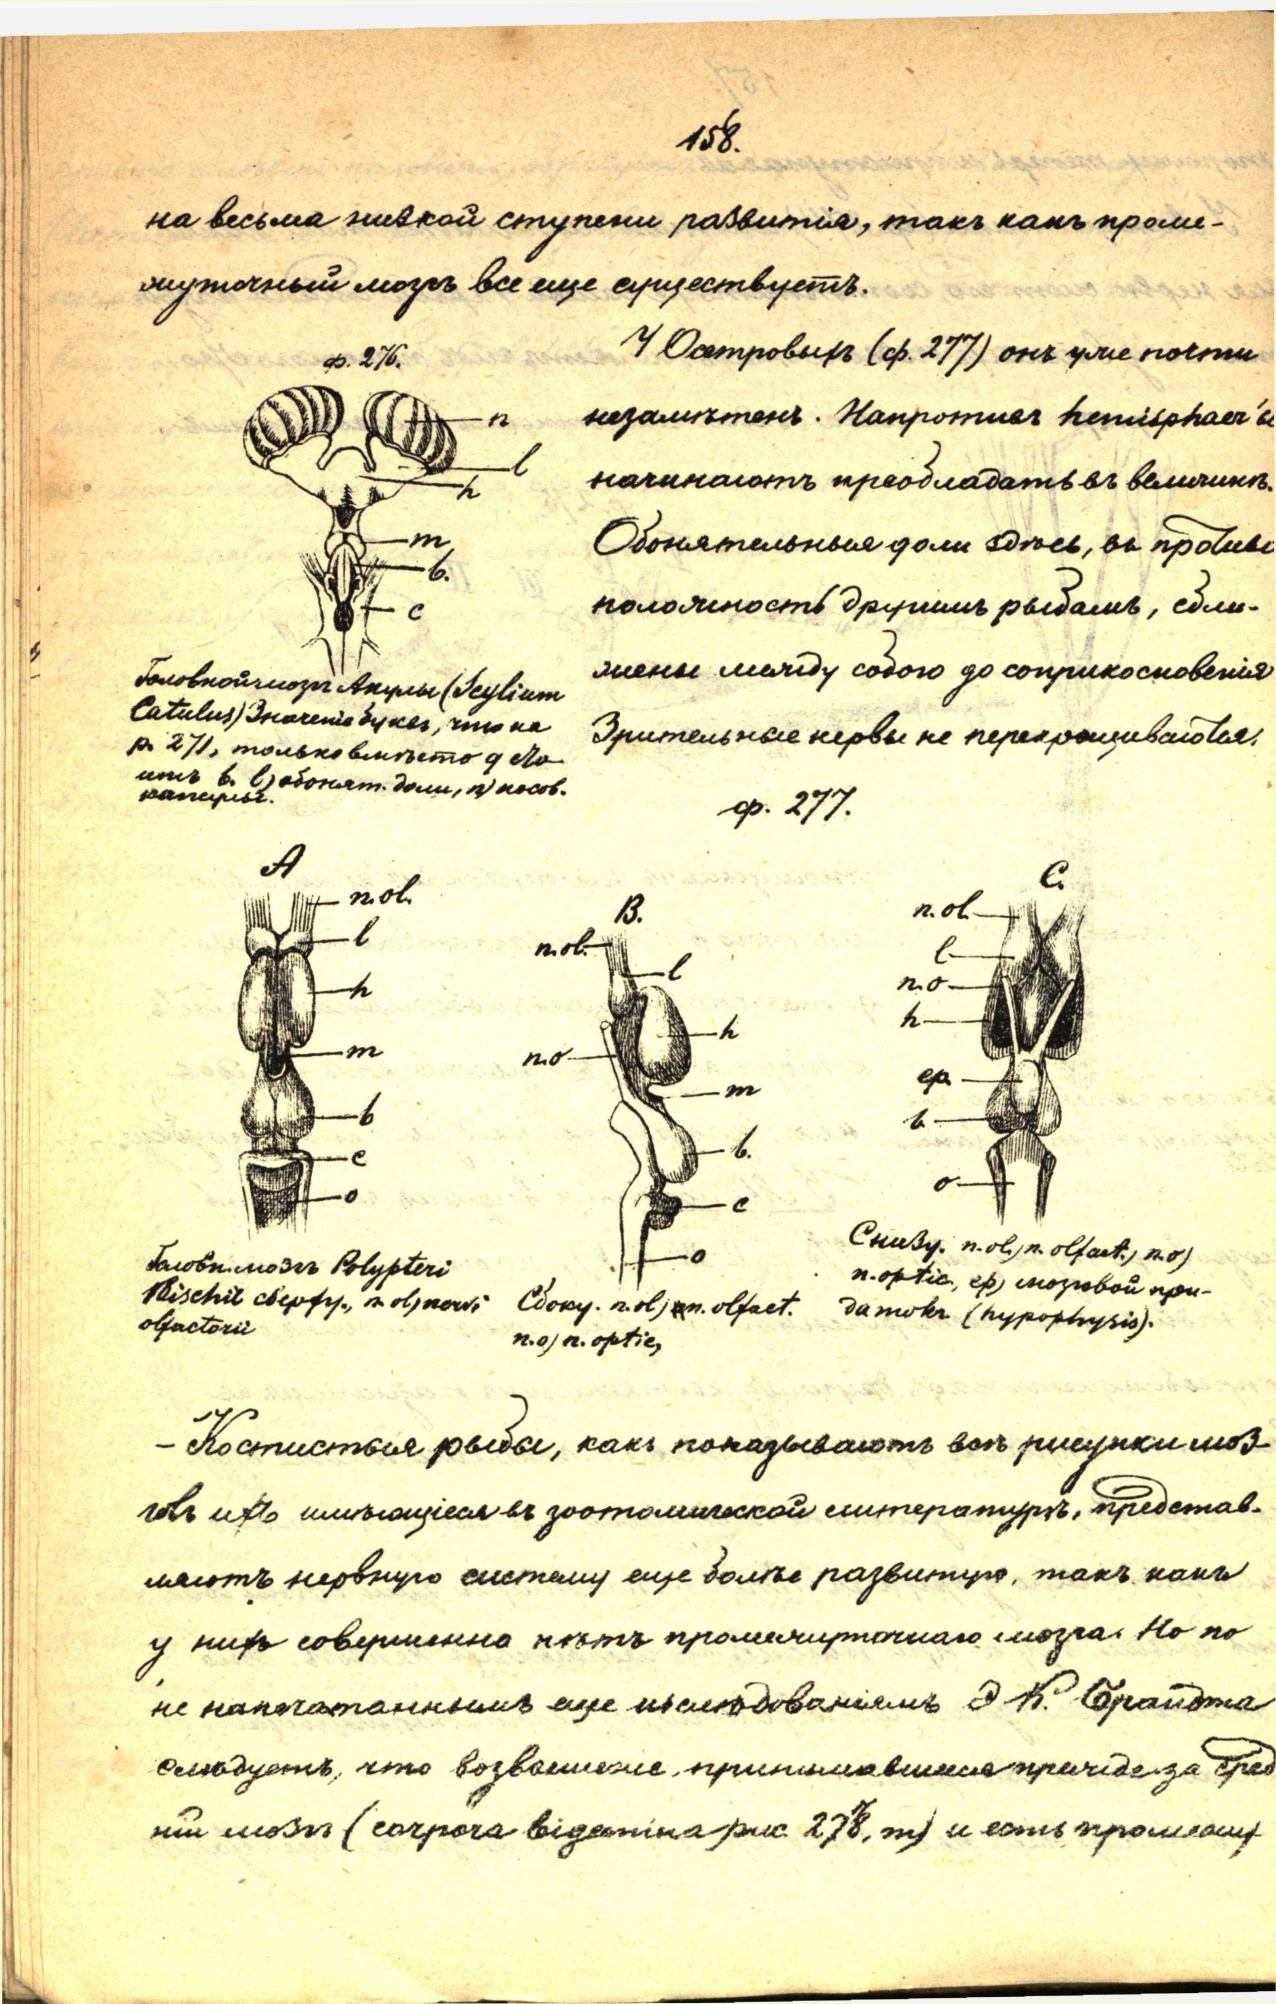 158.
на весьма низкой ступени развитія, такъ какъ проме-
жуточный мозгъ все еще существуетъ.
ф. 276.
n
l
h
m
b.
c
Головной мозгъ Акулы (Scylium
Catulus) Значеніе буквъ, что на
р. 271, только вмѣсто q сто-
итъ b. l) обонят. доли, n) носов.
капсулы.
У Осетровыхъ (ф. 277) онъ уже почти
незамѣтенъ. Напротивъ hemisphaer'ы
начинаютъ преобладать въ величинѣ.
Обонятельныя доли здѣсь, въ противо
положность другимъ рыбамъ, сбли-
жены между собою до соприкосновенія
Зрительные нервы не перекрещиваются.
ф. 277.
A
n.ol.
l
h
m
b
c
o
Головн. мозгъ Polypteri
Bischit сверху., n.ol) nervi
olfactorii
B.
n.ol.
l
h
n.o
m
b.
c
o
Сбоку. n.ol) n. olfact.
n.o) n. optic,
C.
n.ol.
l
n.o
h
ep.
b
o
Снизу. n.ol.) n. olfact., n.o)
n. optic., ep) мозговой при-
датокъ (hypophysis).
– Костистыя рыбы, какъ показываютъ всѣ рисунки моз-
говъ ихъ имѣющіеся въ зоотомической литературѣ, представ-
ляютъ нервную систему еще болѣе развитую, такъ какъ
у нихъ совершенно нѣтъ промежуточнаго мозга. Но по
не напечатаннымъ еще изслѣдованіямъ Э К. Брандта
слѣдуетъ, что возвышеніе, принимавшееся прежде за сред
ній мозгъ (corpora bigemina рис. 278, m) и есть промежу